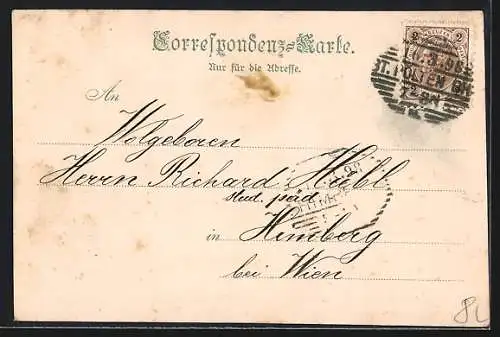 Correspondenz-Karte.
Nur für die Adresse.
2 2
ST. PÖLTEN BH
An
Wolgeboren
Herrn Richard
stud. paed
in Himberg
bei Wien